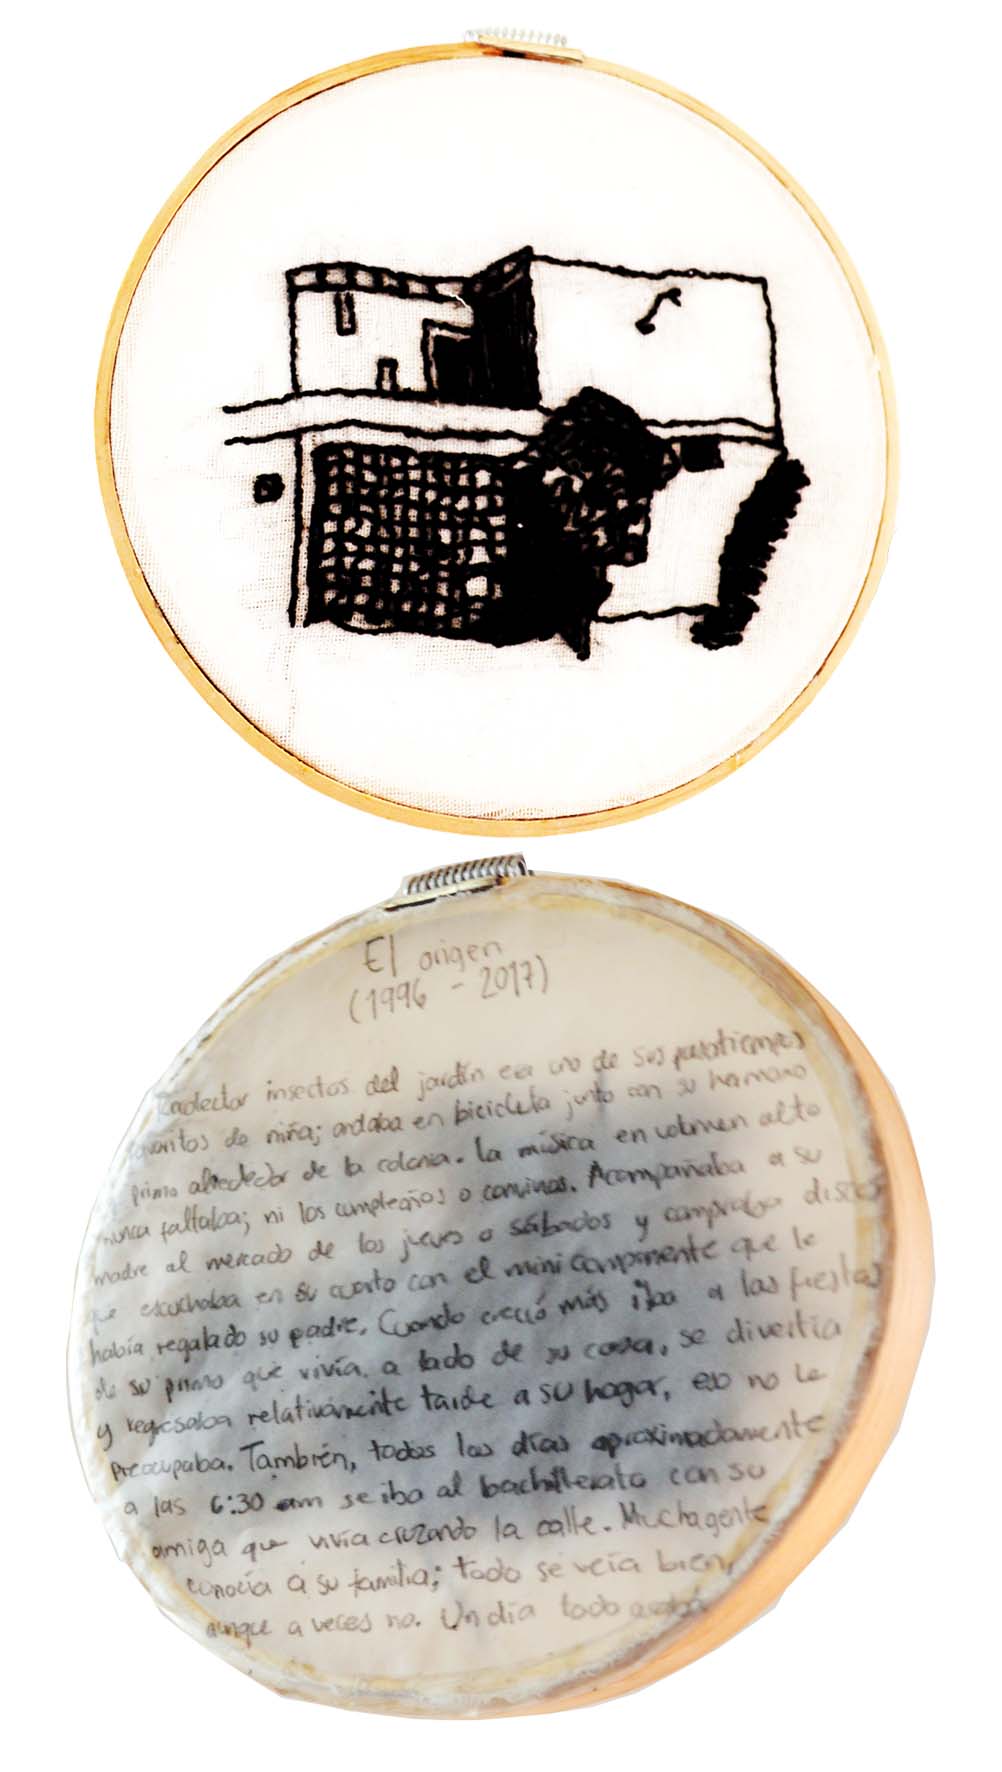 El origen
(1996 - 2017)
Recolectar insectos del jardín era uno de sus pasatiempos
favoritos de niña; andaba en bicicleta junto con su hermano
primo alrededor de la colonia. La música en volumen alto
nunca faltaba; ni los cumpleaños o convivios. Acompañaba a su
madre al mercado de los jueves o sábados y compraba discos
que escuchaba en su cuarto con el mini componente que le
había regalado su padre. Cuando creció más iba a las fiestas
de su primo que vivía a lado de su casa, se divertía
y regresaba relativamente tarde a su hogar, eso no le
preocupaba. También, todos los días aproximadamente
a las 6:30 am se iba al bachillerato con su
amiga que vivía cruzando la calle. Mucha gente
conocía a su familia; todo se veía bien,
aunque a veces no. Un día todo acabó